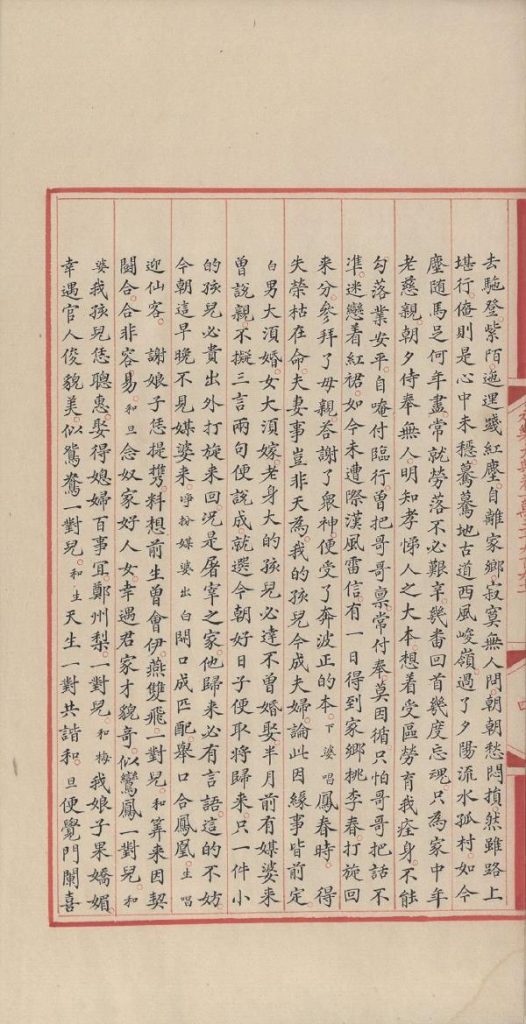 去駞登紫陌迤逞踐紅塵自離家鄉寂寞無人問朝朝愁悶損然雖路上
堪行俺則是心中未穩驀驀地古道西風峻嶺過了夕陽流水孤村如今
塵随馬足何年盡常就勞落不必艱辛幾畨回首幾度忘魂只為家中年
老慈親朝夕侍奉無人明知孝悌人之大本想着受區勞育我痊身不能
勾落業安平自唵付臨行曾把哥哥禀常付奉莫因循只怕哥哥把話不
準迷戀着紅裙如今未遭際漢風雷信有一日得到家鄉桃李春打旋回
来分參拜了母親荅謝了衆神便受了奔波正的本下婆唱鳳春時得
失荣枯在命夫妻事豈非天為我的孩兒今成夫婦論此因緣事皆前定
白男大湏婚女大湏嫁老身大的孩兒必達不曾婚娶半月前有媒婆来
曾說親不擬三言兩句便說成就選今朝好日子便取將歸来只一件小
的孩兒必貴出外打旋来回况是屠宰之家他歸来必有言語這的不妨
今朝這早晚不見媒婆来淨扮媒婆出白開口成匹配舉口合鳳凰生唱
迎仙客謝娘子恁提携料想前生曾會伊燕雙飛一對兒和筭来因契
闊合合非容易和旦念奴家好人女幸遇君家才貌奇似鸞鳳一對兒和
婆我孩兒恁聰惠娶得媳婦百事冝鄭州梨一對兒和梅我娘子果嬌媚
幸遇官人俊貌美似鴛鴦一對兒和生天生一對共諧和旦便覺門闌喜